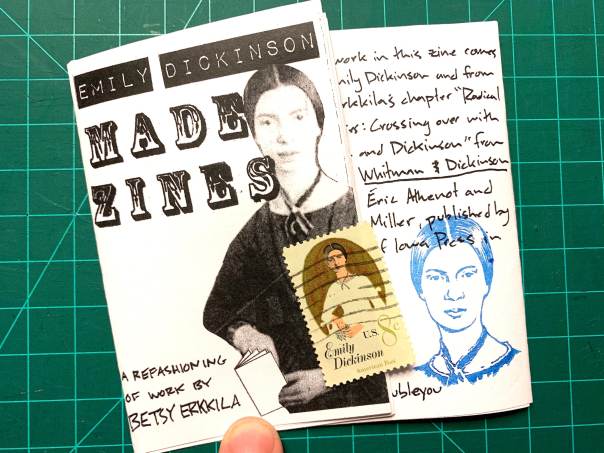 EMILY DICKINSON
MADE
ZINES
A REFASHIONING
OF WORK BY
BETSY ERKKILA
U.S. 8c
Emily
Dickinson
American Poet
work in this zine comes
Emily Dickinson and from
Erkkila's chapter "Radical
: Crossing over with
and Dickinson" from
Whitman & Dickinson
Éric Athenot and
Miller, published by
f Iowa Press in
ubleyou